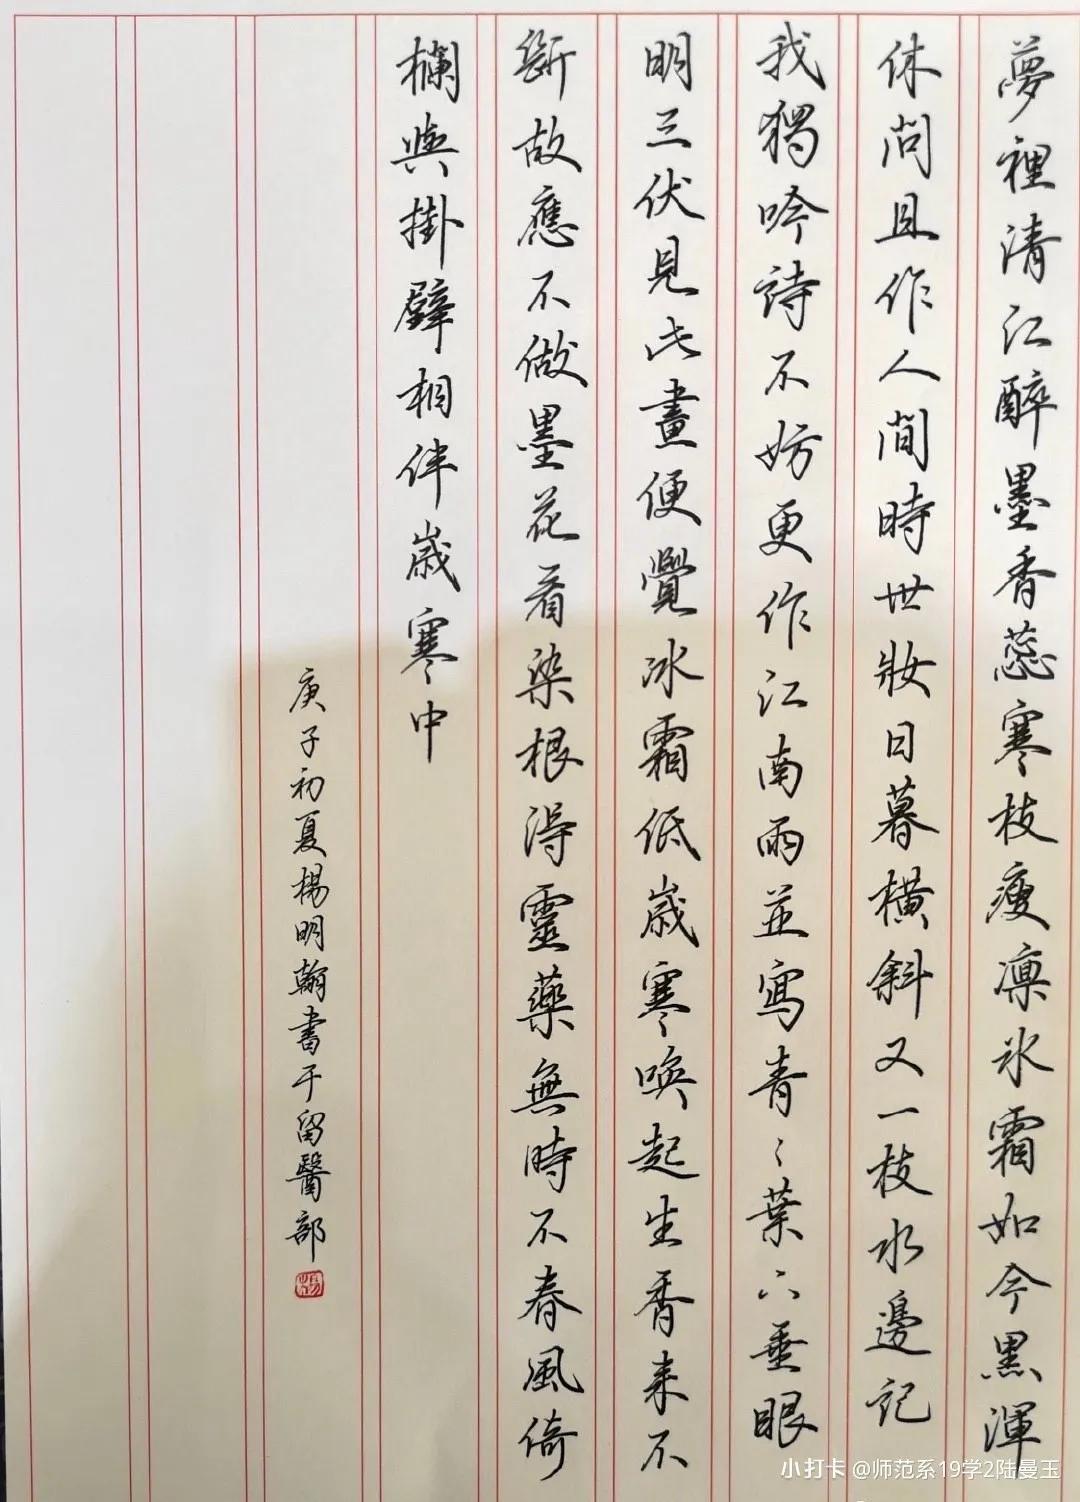 夢裡清江醉墨香蕊寒枝瘦凛氷霜如今黒渾
休問且作人間時世妝日暮橫斜又一枝水邊記
我獨吟詩不妨更作江南雨並寫青〻葉下垂眼
明三伏見此畫便覺冰霜低歲寒喚起生香来不
斷故應不做墨花看染根得靈藥無時不春風倚
欄與掛壁相伴歲寒中
庚子初夏楊明翰書于留醫部
楊
小打卡 @师范系19学2陆曼玉